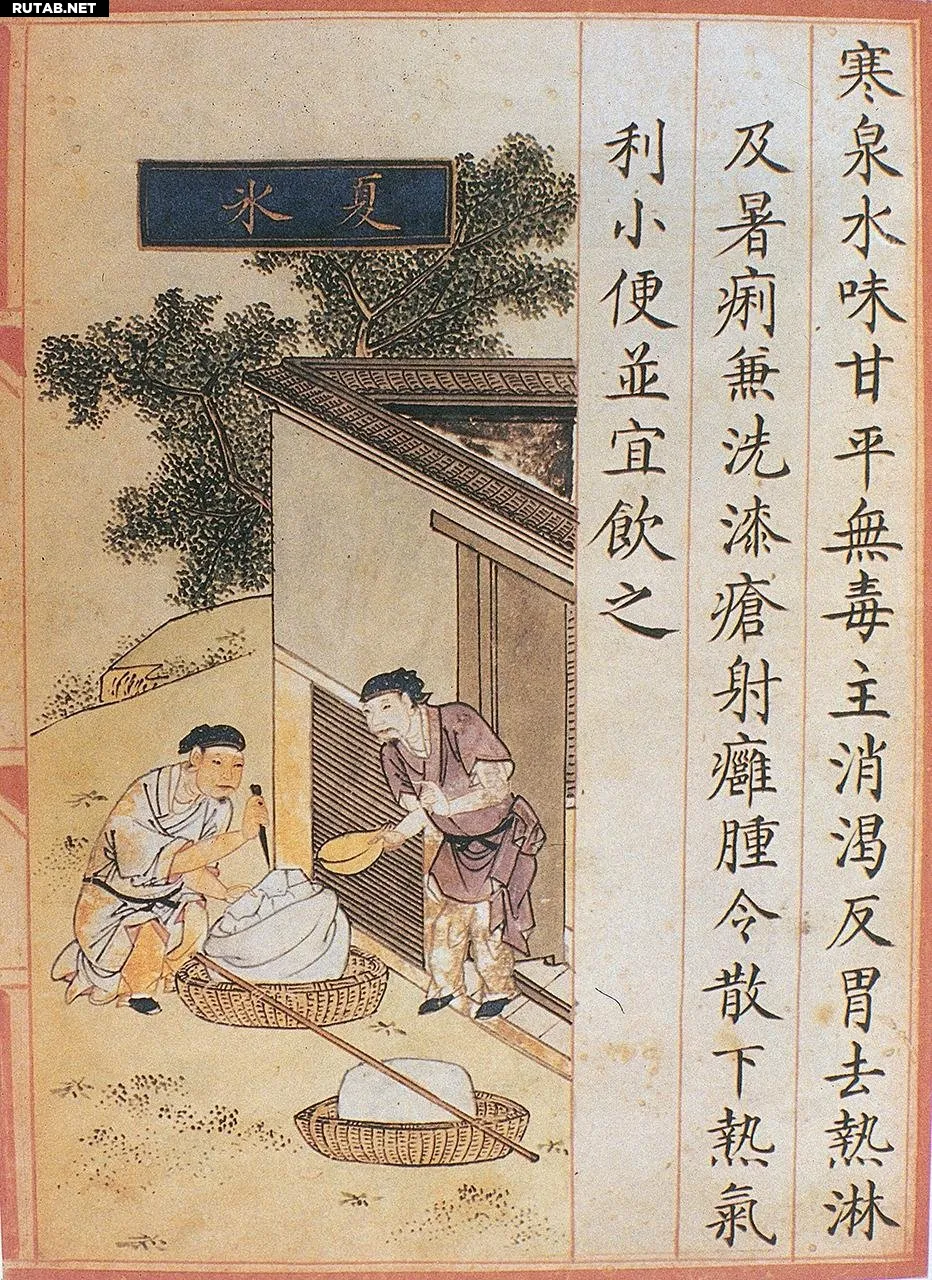 RUTAB.NET
寒泉水味甘平無毒主消渴反胃去熱淋
及暑痢兼洗漆瘡射癰腫令散下熱氣
利小便並宜飲之
夏氷